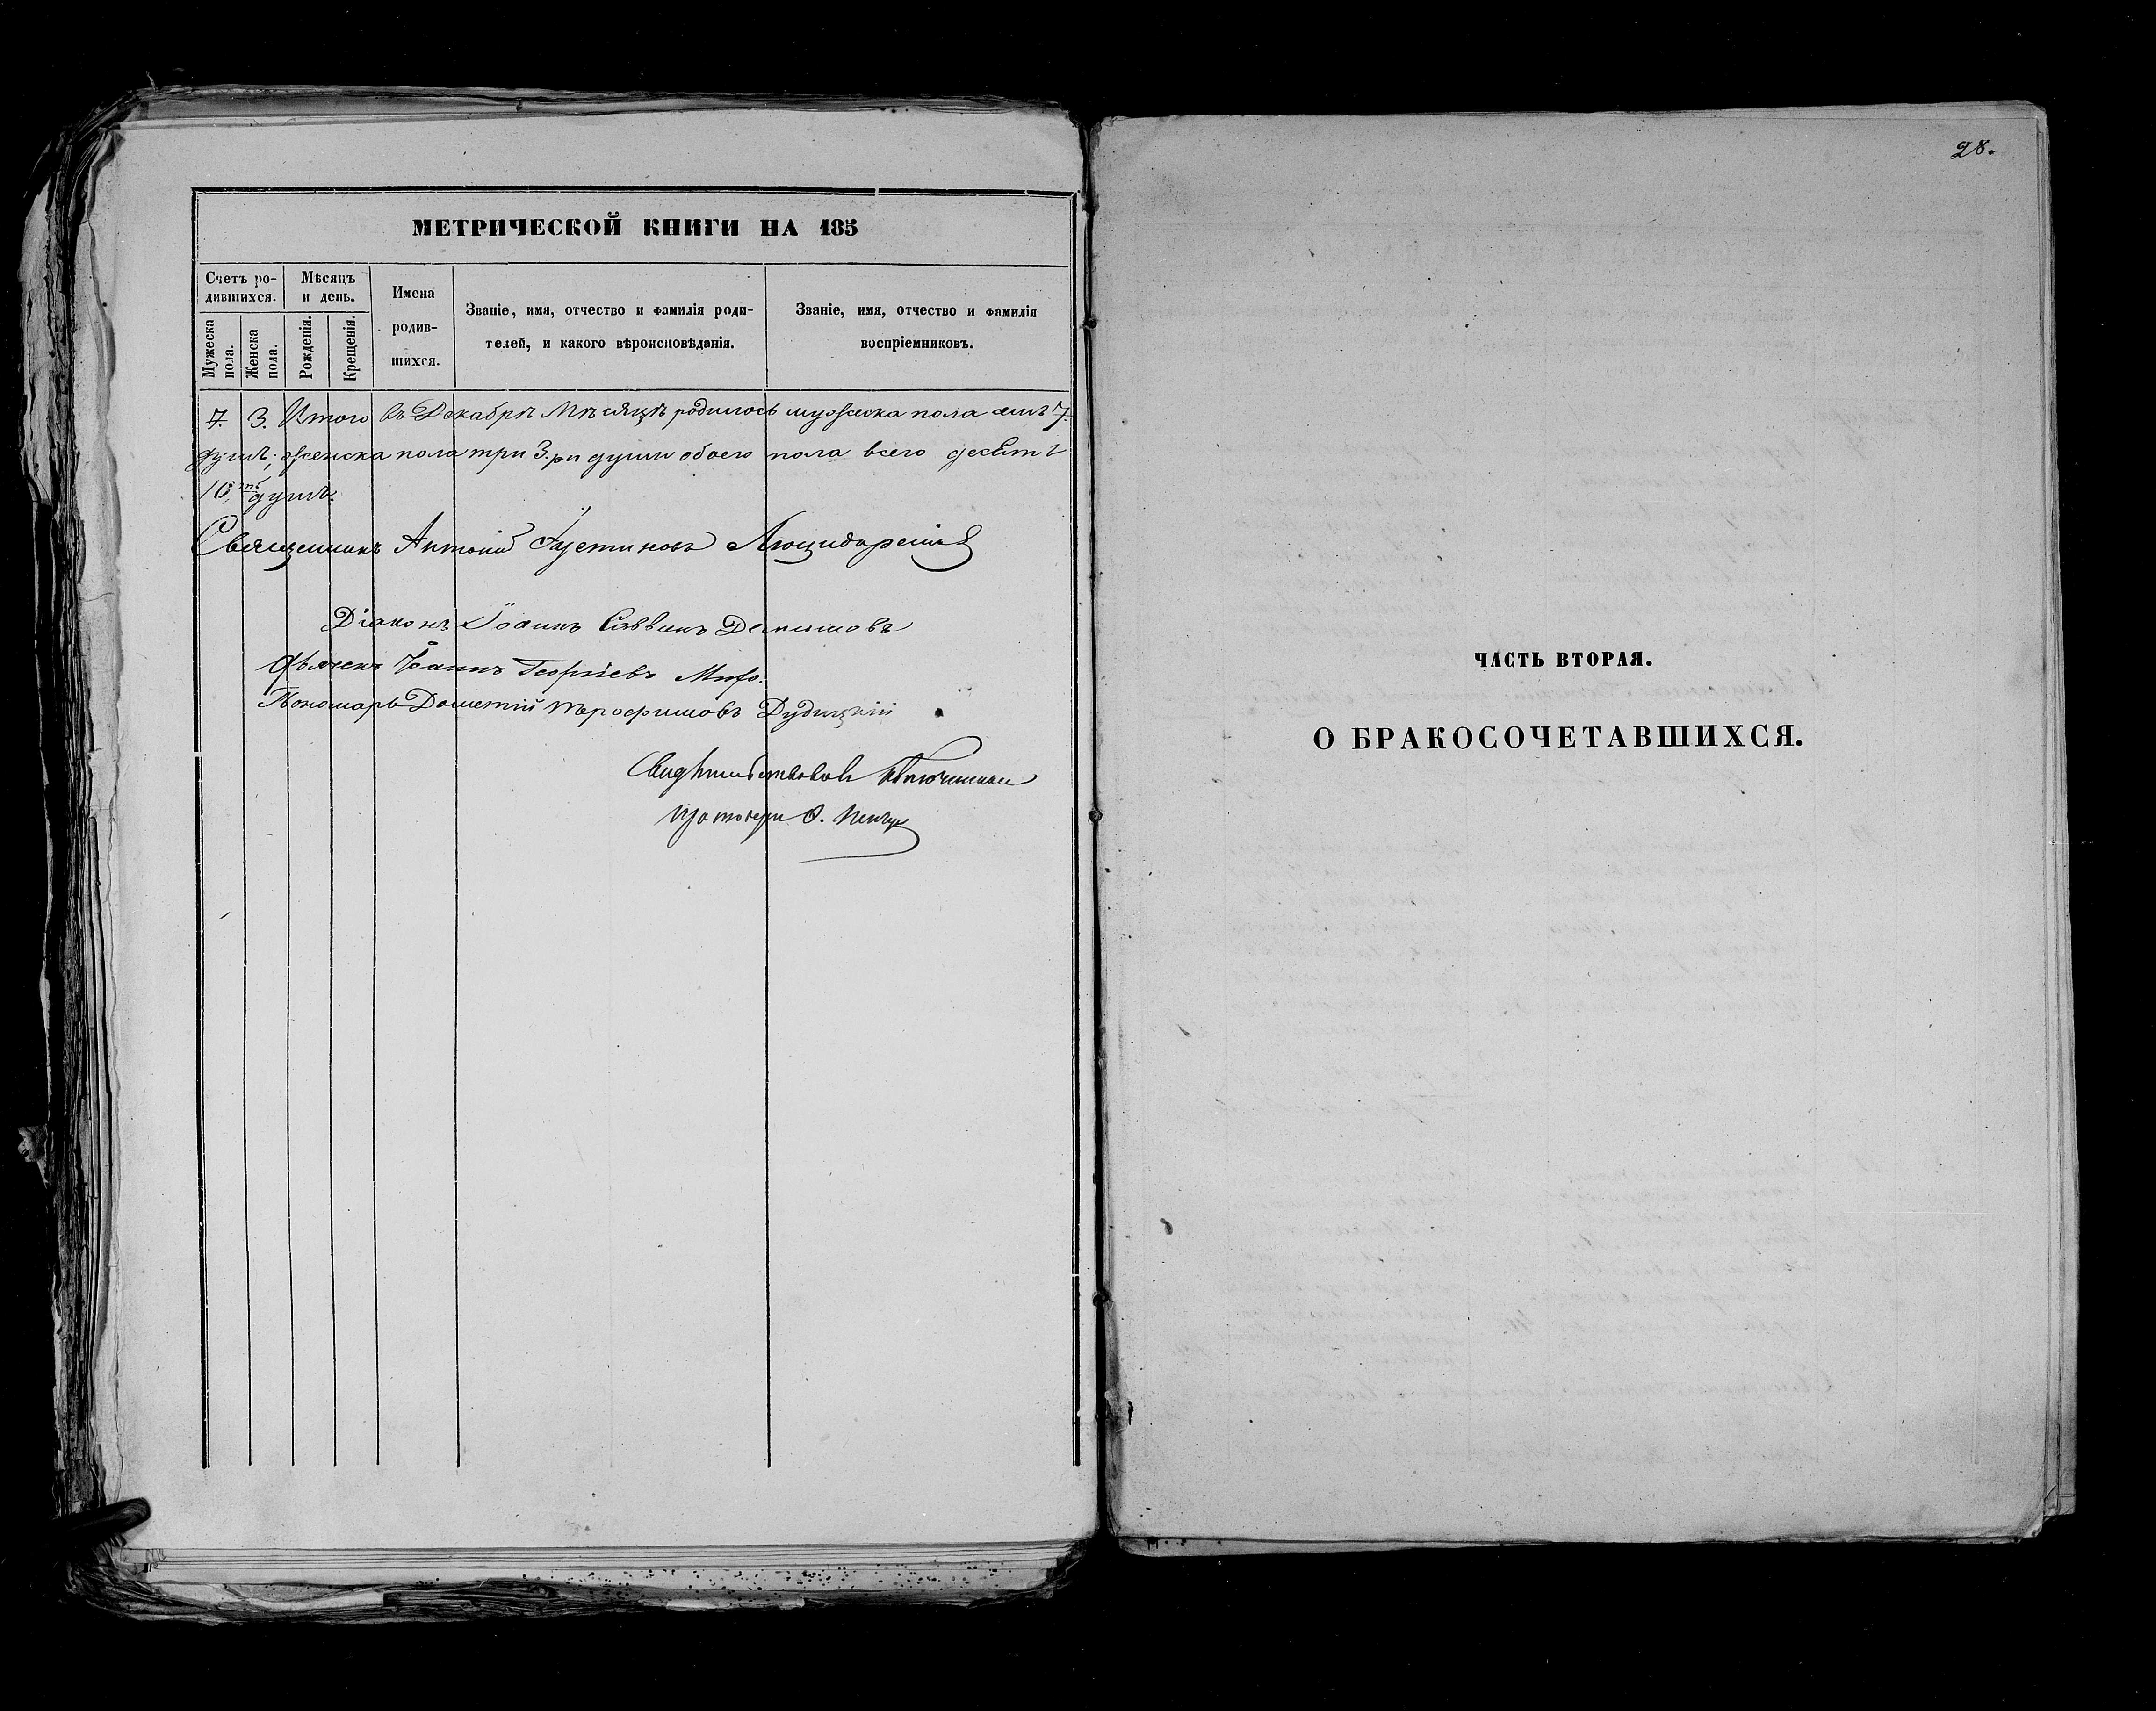 МЕТРИЧЕСКОЙ КНИГИ НА 185
Счетъ ро-
дившихся.
Мѣсяцъ
и день.
Мужеска
пола.
Женска
пола.
Рожденія.
Крещенія.
Имена
родив-
шихся.
Званіе, имя, отчество и фамилія роди-
телей, и какого вѣроисповѣданія.
Званіе, имя, отчество и фамилія
воспріемниковъ.
7. 3. Итого въ Декабрѣ Мѣсяцѣ родилось мужеска пола 7.
душъ; женска пола три 3.ри души обоего пола всего десять
10,ть душъ.
Священникъ Антоній Іустиновъ
Діаконъ Іоаннъ Саввинъ
Дьячекъ Іоаннъ Георгіевъ
Пономарь Дометій Трофимовъ Дудицкій
Свидѣтельствовалъ
28.
ЧАСТЬ ВТОРАЯ.
О БРАКОСОЧЕТАВШИХСЯ.